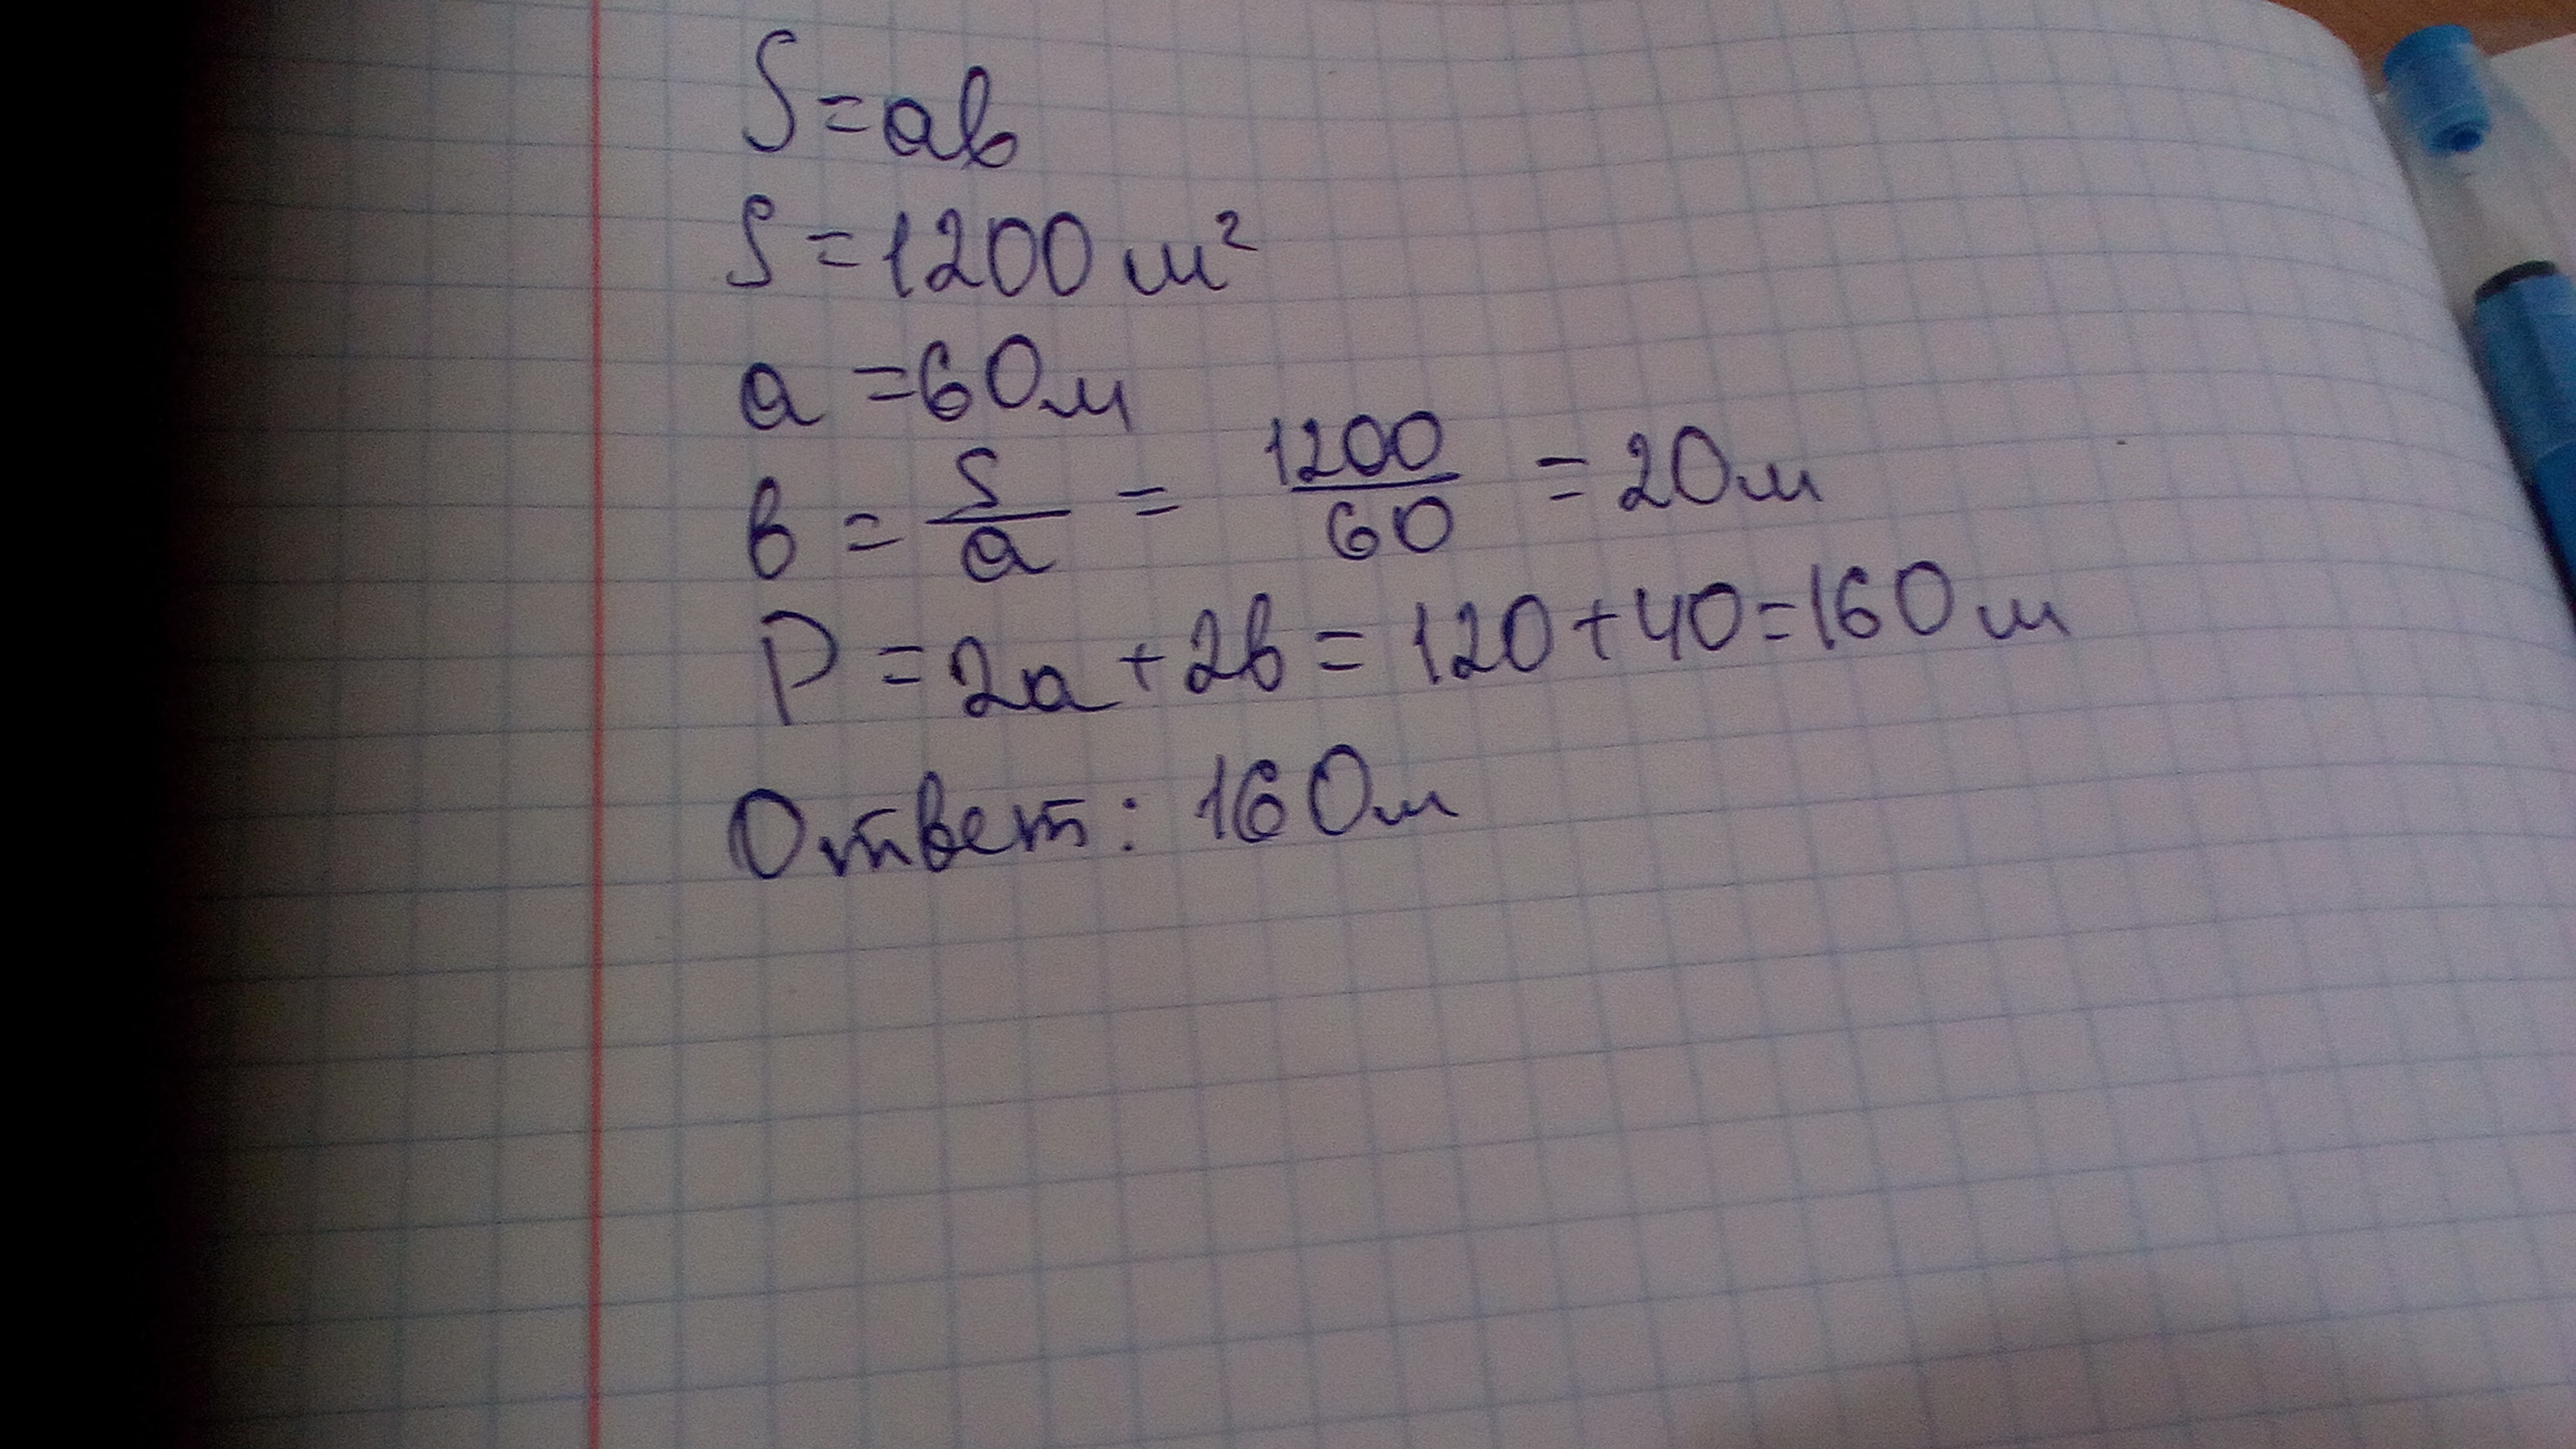 S=ab
S=1200 м²
a=60м
b = S/a = 1200/60 = 20м
P = 2a + 2b = 120+40=160 м
Ответ: 160м